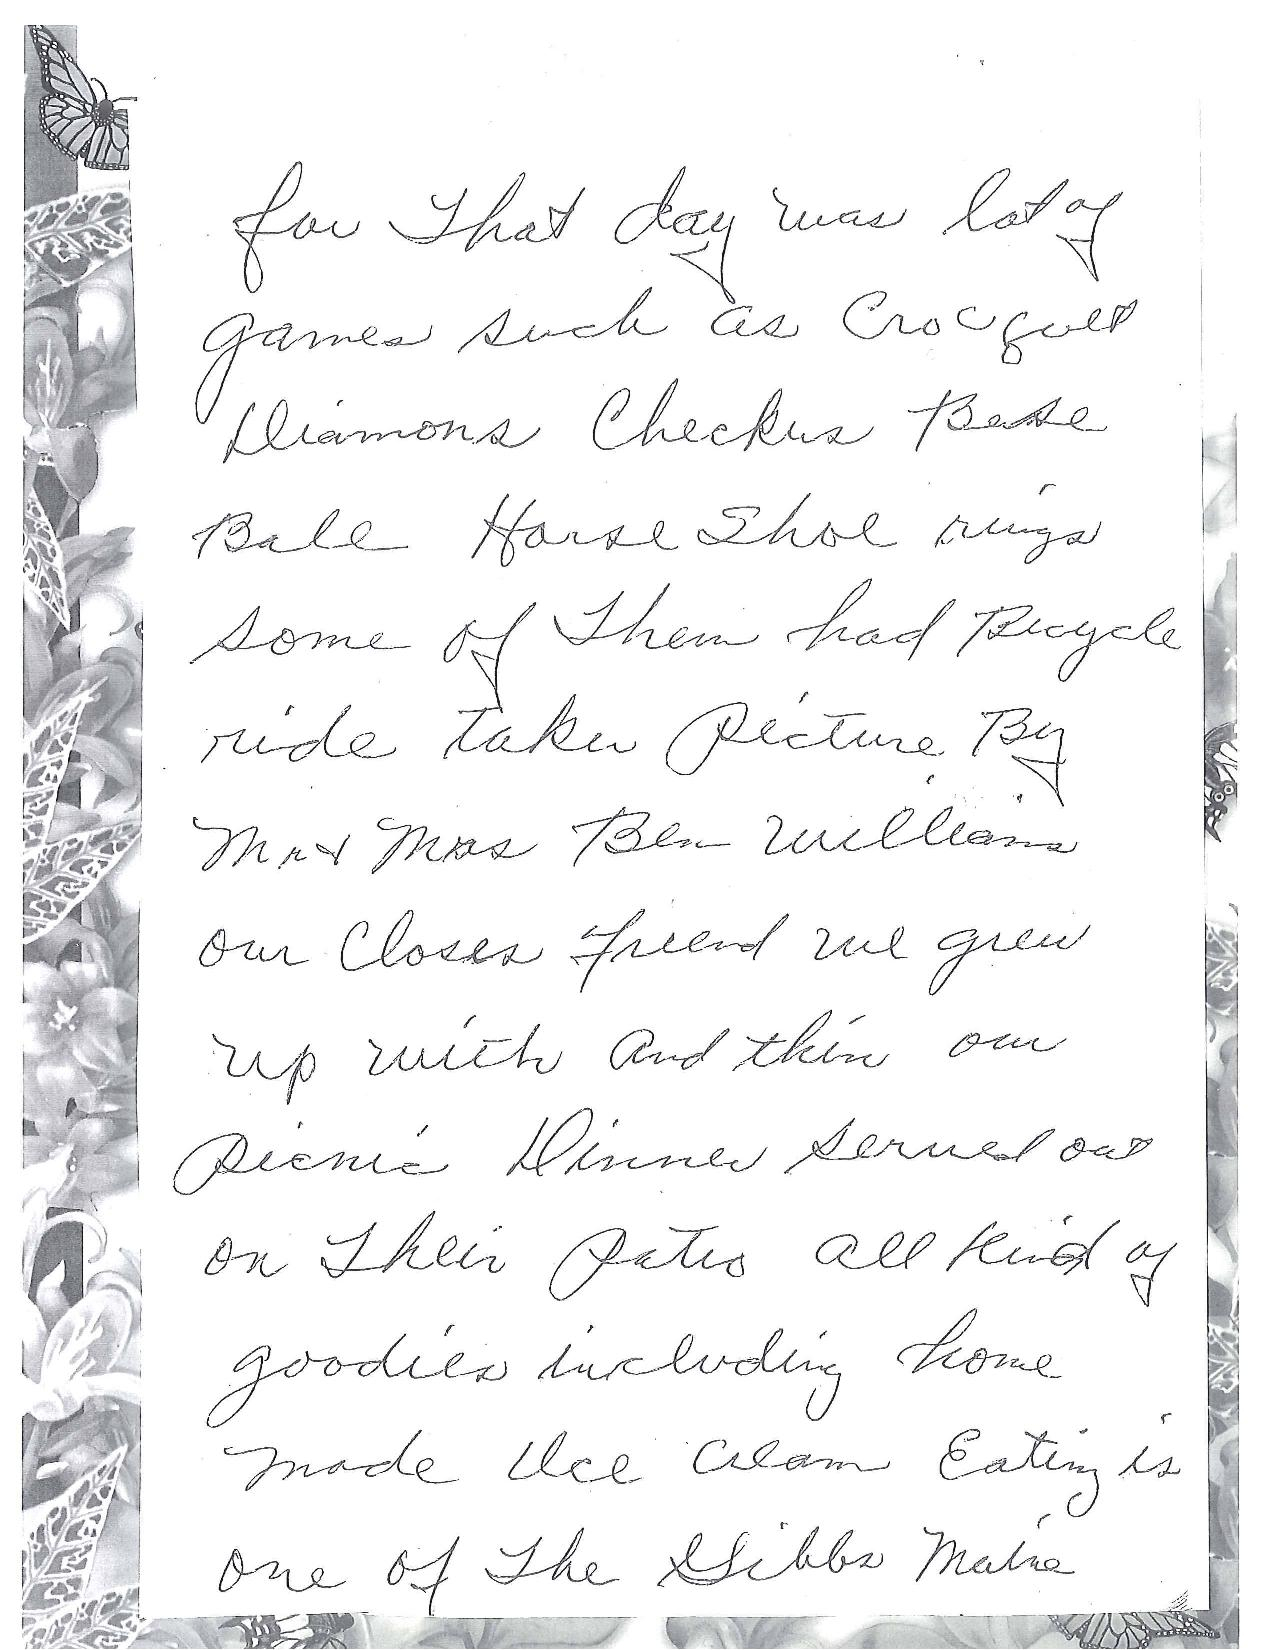 for that day was lot of
games such as Crocquet
Diamons Checkers Base
Ball Horse Shoe rings
some of them had Bicycle
ride taken picture By
Mr & Mrs Ben Williams
our Closes friend we grew
up with and then our
picnic Dinner served out
on their patio all kind of
goodies including home
made Ice cream Eating is
one of the Gibbs